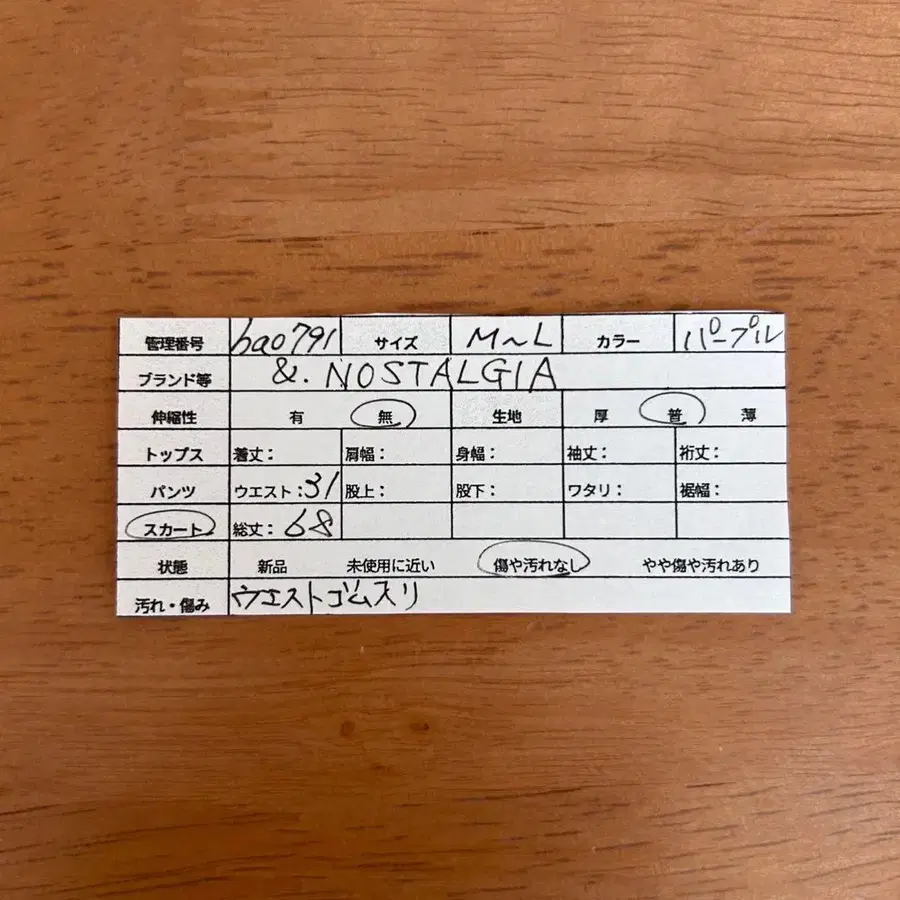 管理番号 ba0791 サイズ M～L カラー パープル
ブランド等 &. NOSTALGIA
伸縮性 有 無 生地 厚 普 薄
トップス 着丈： 肩幅： 身幅： 袖丈： 裄丈：
パンツ ウエスト：31 股上： 股下： ワタリ： 裾幅：
スカート 総丈：68
状態 新品 未使用に近い 傷や汚れなし やや傷や汚れあり
汚れ・傷み ウエストゴム入り